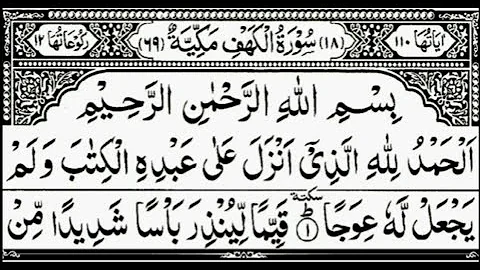 اٰيَاتُهَا ١١٠ (١٨) سُوْرَةُ الْكَهْفِ مَكِّيَّةٌ (٦٩) رُكُوْعَاتُهَا ١٢
بِسْمِ اللّٰهِ الرَّحْمٰنِ الرَّحِيْمِ
اَلْحَمْدُ لِلّٰهِ الَّذِيْۤ اَنْزَلَ عَلٰى عَبْدِهِ الْكِتٰبَ وَ لَمْ
يَجْعَلْ لَّهٗ عِوَجًا ؕ سكتة ١ قَيِّمًا لِّيُنْذِرَ بَاْسًا شَدِيْدًا مِّنْ